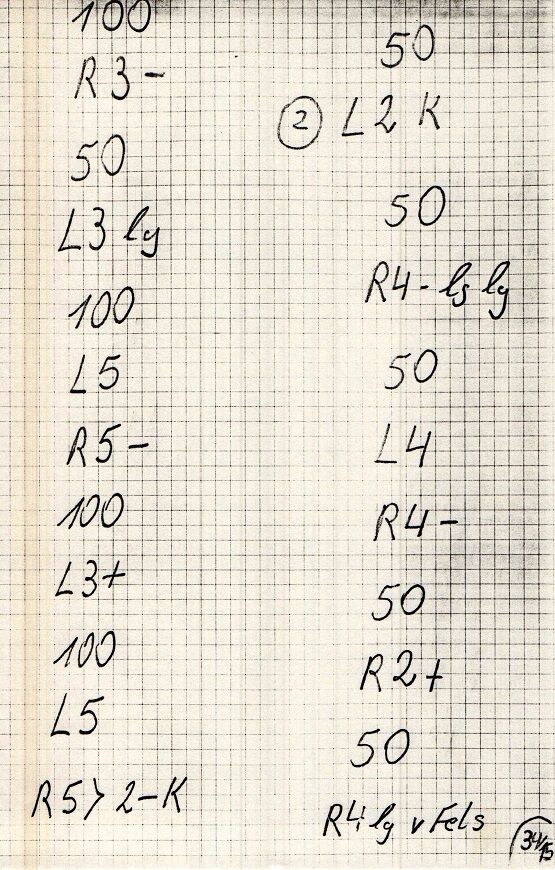 100
R3-
50
L3 lg
100
L5
R5-
100
L3+
100
L5
R5>2-K
50
② L2 K
50
R4- ls lg
50
L4
R4-
50
R2+
50
R4 lg v Fels
34/15